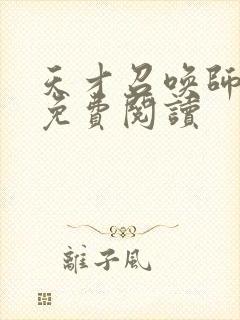 天才召喚師
免費閱讀
離子風